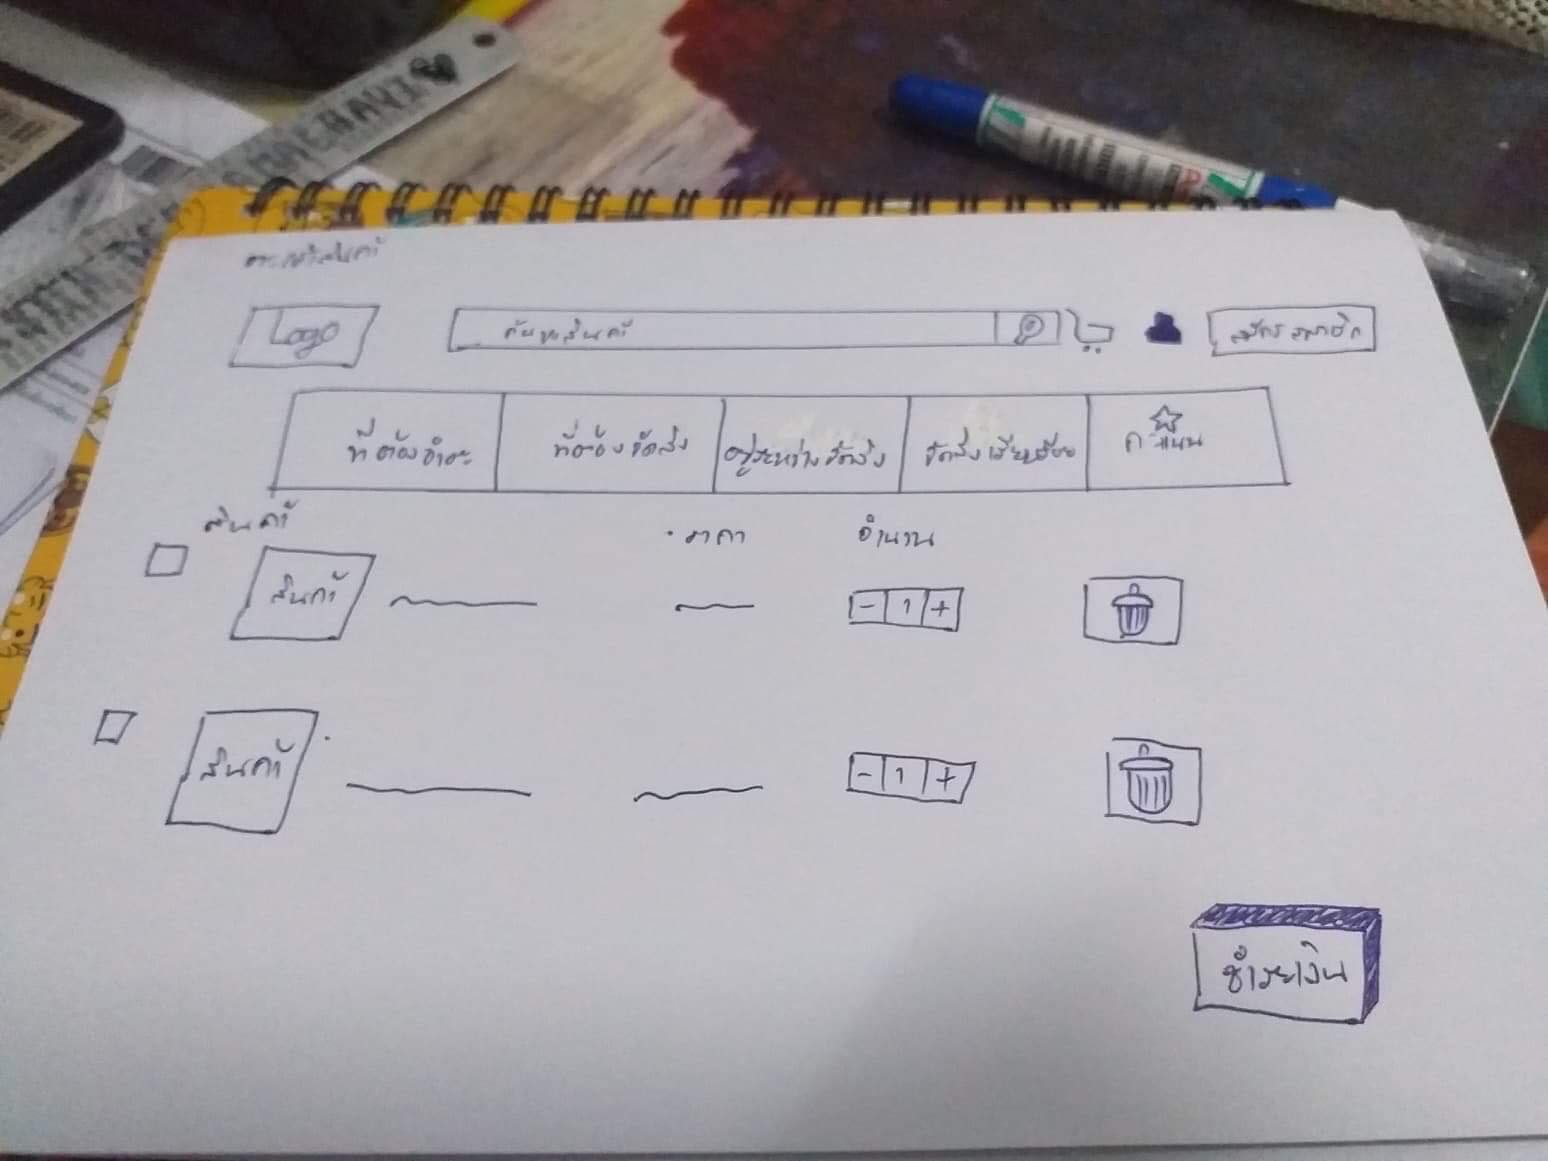 ตะกร้าสินค้า
Logo
ค้นหาสินค้า
สมัครสมาชิก
ที่ต้องชำระ
ที่ต้องจัดส่ง
อยู่ระหว่างจัดส่ง
จัดส่งเรียบร้อย
คะแนน
สินค้า
ราคา
จำนวน
สินค้า
- 1 +
สินค้า
- 1 +
ชำระเงิน